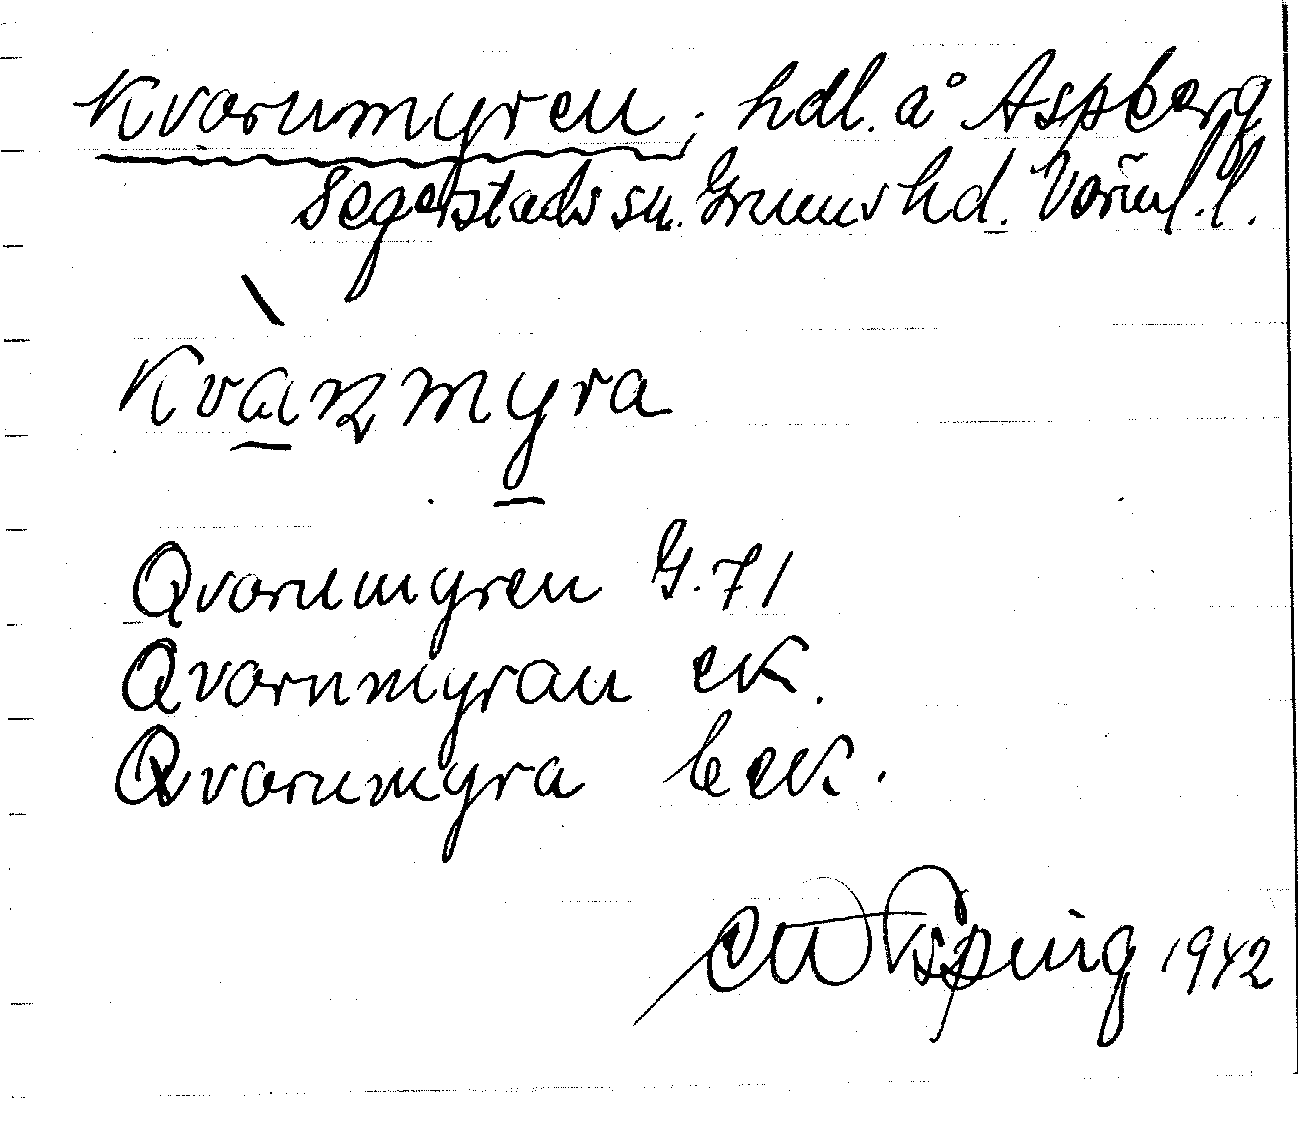 Kvarnmyren, hdl. å Aspberg
Segerstads sn. Grums hd. Värml. l.
Kvàɳmyra
Qvarnmyren G. 71
Qvarnmyran ek.
Qvarnmyra bek.
1942